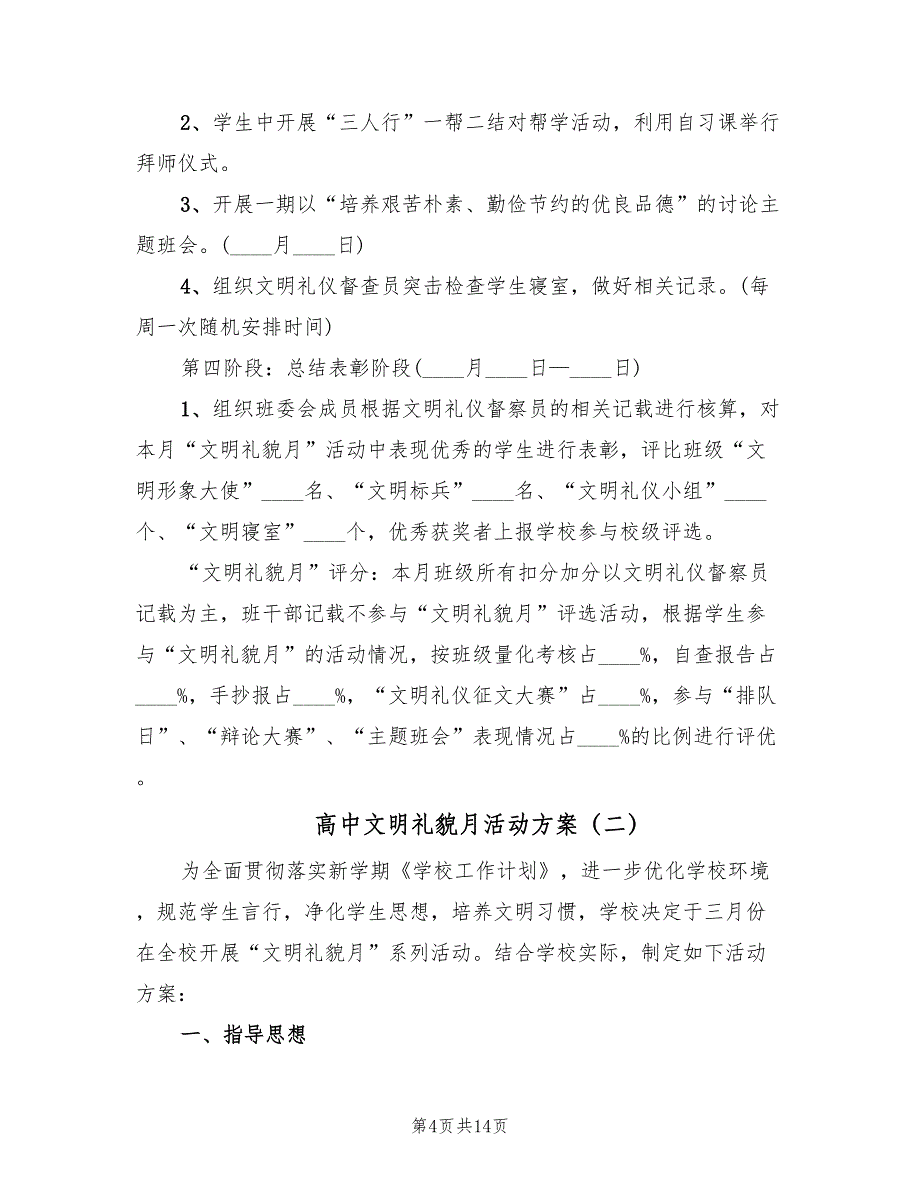 2、学生中开展“三人行”一帮二结对帮学活动，利用自习课举行
拜师仪式。
3、开展一期以“培养艰苦朴素、勤俭节约的优良品德”的讨论主
题班会。(____月____日)
4、组织文明礼仪督查员突击检查学生寝室，做好相关记录。(每
周一次随机安排时间)
第四阶段：总结表彰阶段(____月____日—____日)
1、组织班委会成员根据文明礼仪督察员的相关记载进行核算，对
本月“文明礼貌月”活动中表现优秀的学生进行表彰，评比班级“文
明形象大使”____名、“文明标兵”____名、“文明礼仪小组”____
个、“文明寝室”____个，优秀获奖者上报学校参与校级评选。
“文明礼貌月”评分：本月班级所有扣分加分以文明礼仪督察员
记载为主，班干部记载不参与“文明礼貌月”评选活动，根据学生参
与“文明礼貌月”的活动情况，按班级量化考核占____%，自查报告占
____%，手抄报占____%，“文明礼仪征文大赛”占____%，参与“排队
日”、“辩论大赛”、“主题班会”表现情况占____%的比例进行评优
。
高中文明礼貌月活动方案（二）
为全面贯彻落实新学期《学校工作计划》，进一步优化学校环境
，规范学生言行，净化学生思想，培养文明习惯，学校决定于三月份
在全校开展“文明礼貌月”系列活动。结合学校实际，制定如下活动
方案：
一、指导思想
第4页共14页